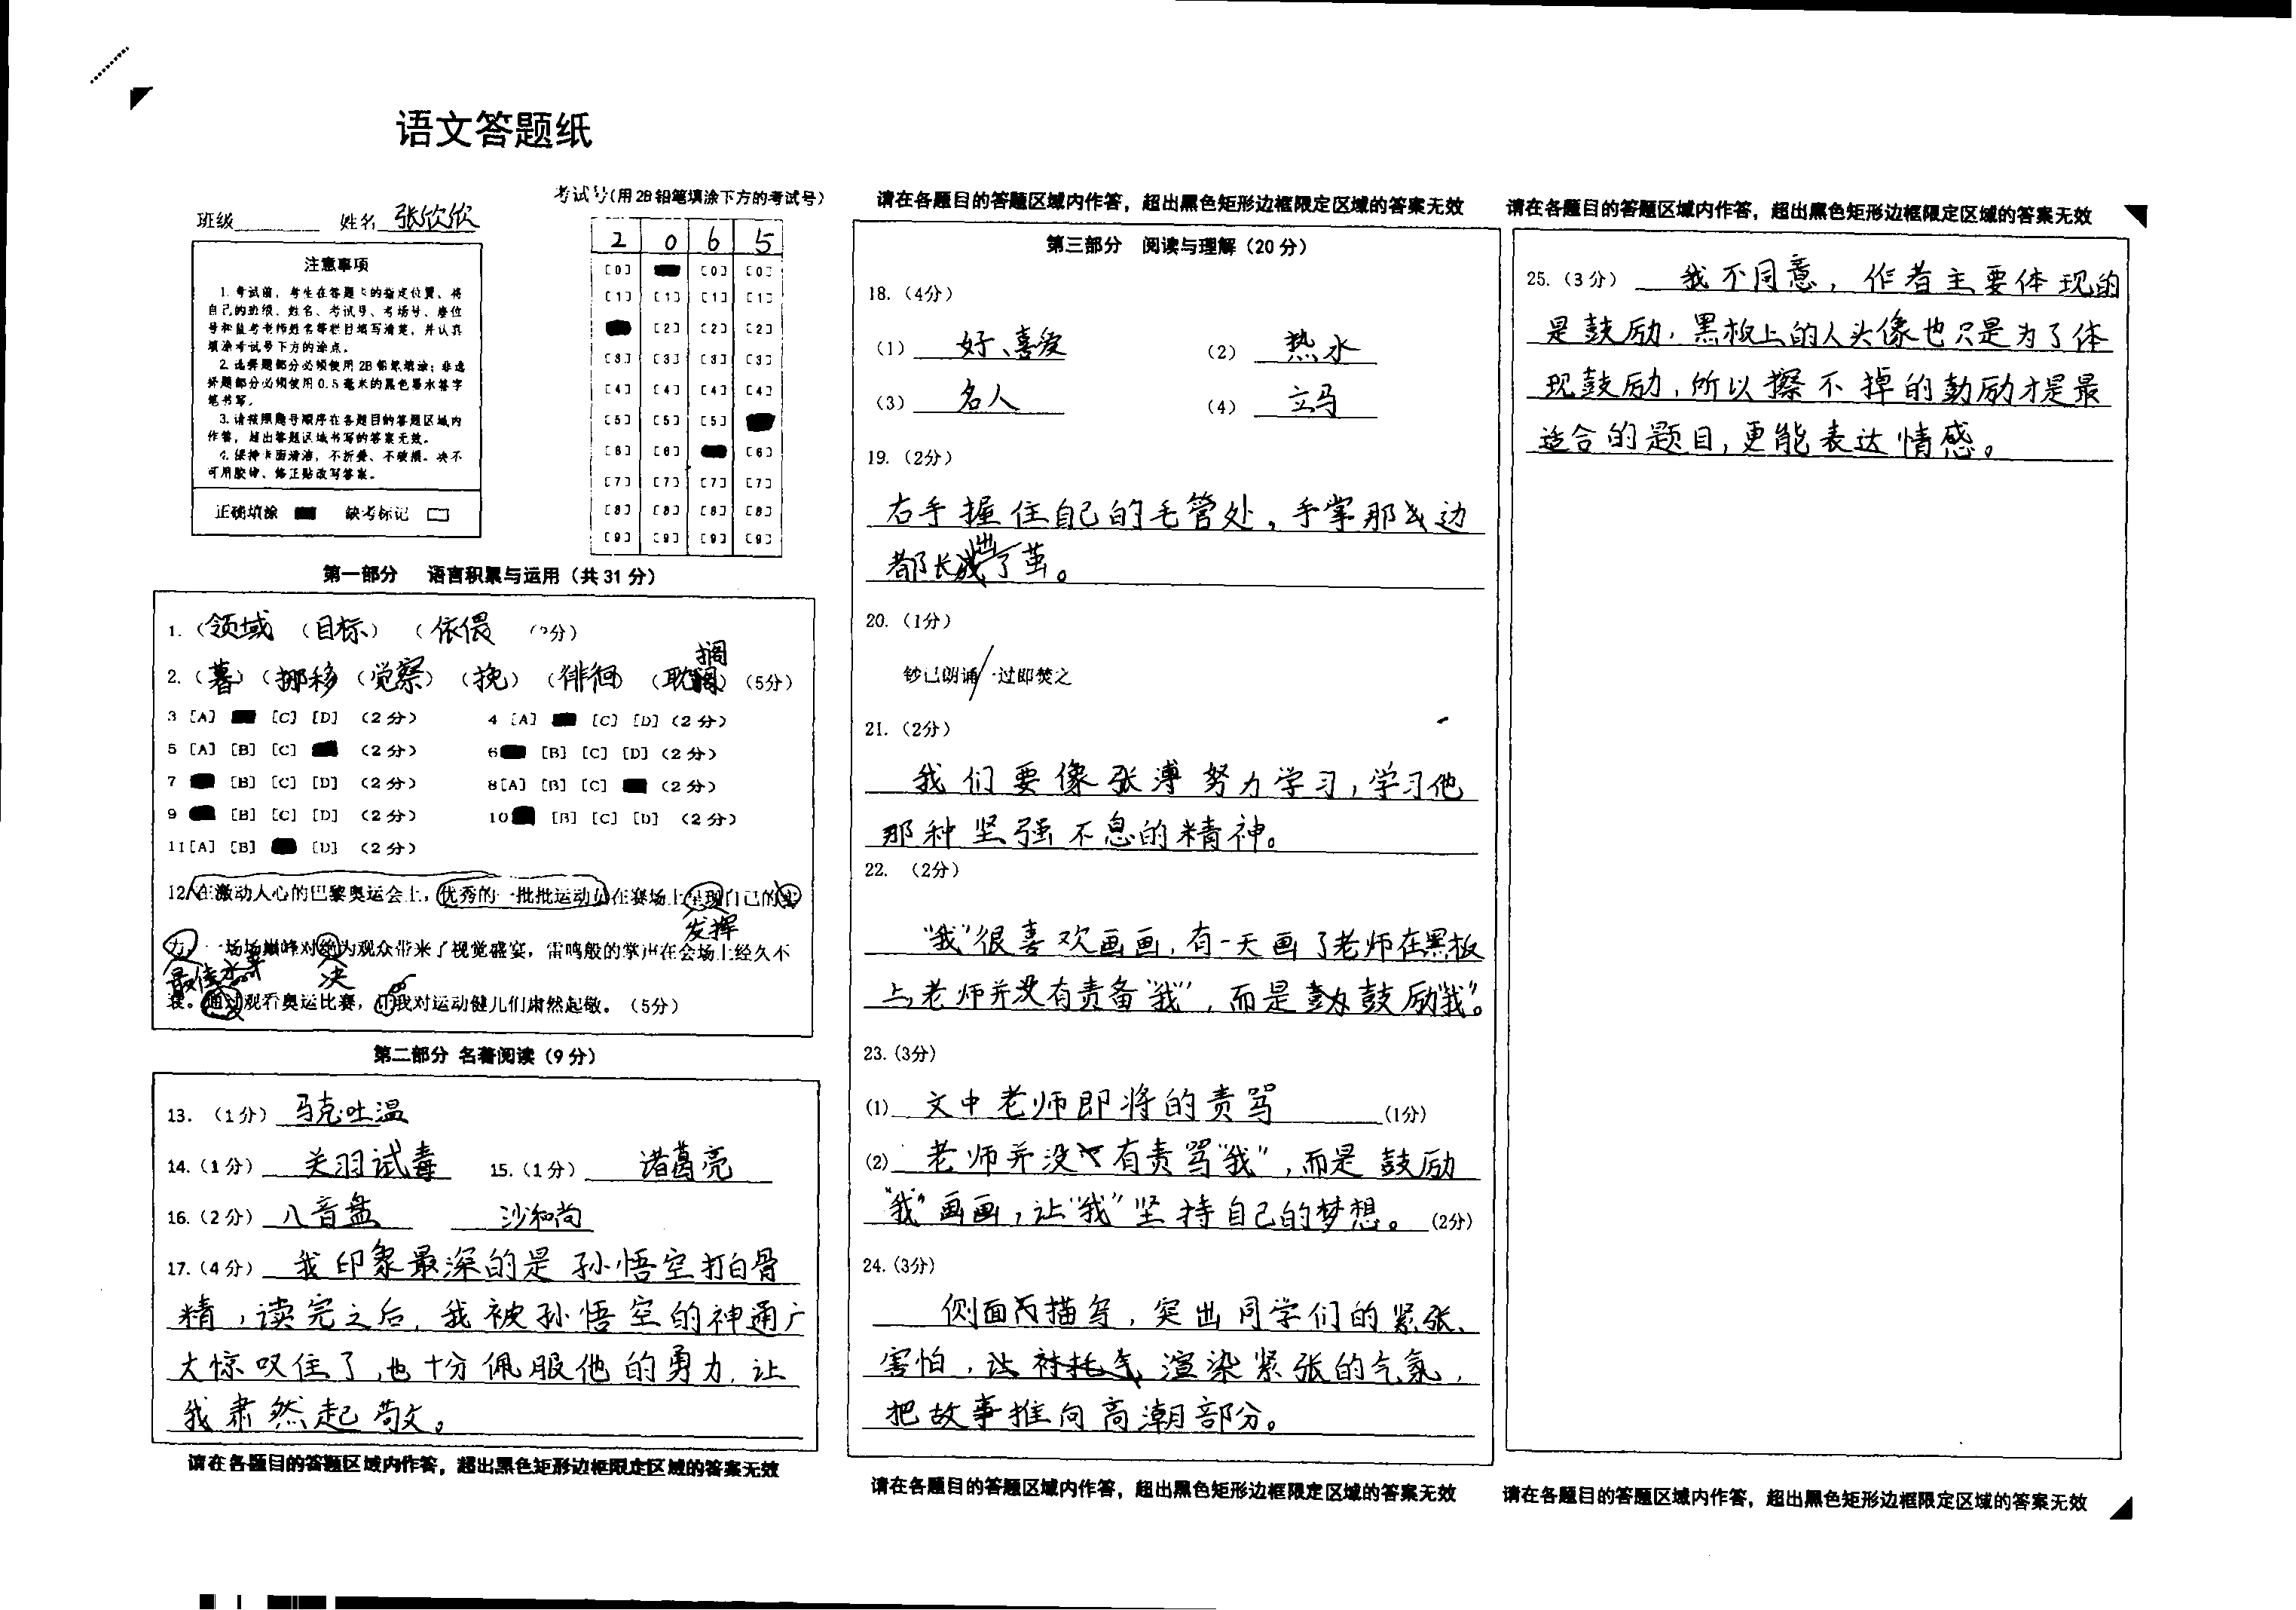 语文答题纸
班级 姓名 张欣依
考试号(用2B铅笔填涂下方的考试号)
2 0 6 5
注意事项
1. 考试前，考生在答题卡的指定位置，将
自己的班级、姓名、考试号、考场号、座位
号和监考老师姓名等栏目填写清楚，并认真
填涂考试号下方的涂点。
2. 选择题部分必须使用2B铅笔填涂；非选
择题部分必须使用0.5毫米的黑色墨水签字
笔书写。
3. 请按照题号顺序在各题目的答题区域内
作答，超出答题区域书写的答案无效。
4. 保持卡面清洁，不折叠、不破损。决不
可用胶带、修正贴改写答案。
正确填涂 缺考标记
[0] [0] [0]
[1] [1] [1] [1]
[2] [2] [2]
[3] [3] [3] [3]
[4] [4] [4] [4]
[5] [5] [5]
[6] [6] [6]
[7] [7] [7] [7]
[8] [8] [8] [8]
[9] [9] [9] [9]
第一部分 语言积累与运用（共31分）
1.（领域 （目标）（依偎 （3分）
2.（暮）（挪移（觉察）（挽）（徘徊）（耽搁）（5分）
3 [A] [C] [D] （2分） 4 [A] [C] [D]（2分）
5 [A] [B] [C] （2分） 6 [B] [C] [D]（2分）
7 [B] [C] [D] （2分） 8[A] [B] [C] （2分）
9 [B] [C] [D] （2分） 10 [B] [C] [D] （2分）
11[A] [B] [D] （2分）
12. 在激动人心的巴黎奥运会上，优秀的一批批运动员在赛场上呈现自己的实
发挥
力，一场场巅峰对绝为观众带来了视觉盛宴，雷鸣般的掌声在会场上经久不
最佳水平 决
衰。通过观看奥运比赛，让我对运动健儿们肃然起敬。（5分）
第二部分 名著阅读（9分）
13. （1分） 马克吐温
14.（1分） 关羽试毒 15.（1分） 诸葛亮
16.（2分） 八音盘 沙和尚
17.（4分） 我印象最深的是孙悟空打白骨
精，读完之后，我被孙悟空的神通广
大惊叹住了，也十分佩服他的勇力，让
我肃然起敬。
请在各题目的答题区域内作答，超出黑色矩形边框限定区域的答案无效
请在各题目的答题区域内作答，超出黑色矩形边框限定区域的答案无效
第三部分 阅读与理解（20分）
18.（4分）
（1） 好、喜爱 （2） 热水
（3） 名人 （4） 立马
19.（2分）
右手握住自己的毛管处，手掌那边
都长出了茧。
20.（1分）
钞已朗诵/一过即焚之
21.（2分）
我们要像张溥努力学习，学习他
那种坚强不息的精神。
22. （2分）
“我”很喜欢画画，有一天画了老师在黑板
上老师并没有责备“我”，而是鼓励“我”。
23.（3分）
(1) 文中老师即将的责骂 (1分)
(2) 老师并没有责骂“我”，而是鼓励
“我”画画，让“我”坚持自己的梦想。(2分)
24.（3分）
侧面描写，突出同学们的紧张、
害怕，渲染紧张的气氛，
把故事推向高潮部分。
请在各题目的答题区域内作答，超出黑色矩形边框限定区域的答案无效
请在各题目的答题区域内作答，超出黑色矩形边框限定区域的答案无效
25.（3分） 我不同意，作者主要体现的
是鼓励，黑板上的人头像也只是为了体
现鼓励，所以擦不掉的勤励才是最
适合的题目，更能表达情感。
请在各题目的答题区域内作答，超出黑色矩形边框限定区域的答案无效